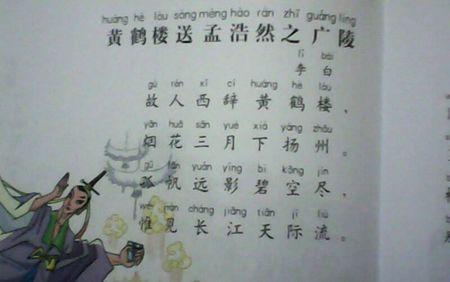 huáng hè lóu sòng mèng hào rán zhī guǎng líng
黄鹤楼送孟浩然之广陵
lǐ bái
李白
gù rén xī cí huáng hè lóu
故人西辞黄鹤楼，
yān huā sān yuè xià yáng zhōu
烟花三月下扬州。
gū fān yuǎn yǐng bì kōng jìn
孤帆远影碧空尽，
wéi jiàn cháng jiāng tiān jì liú
惟见长江天际流。